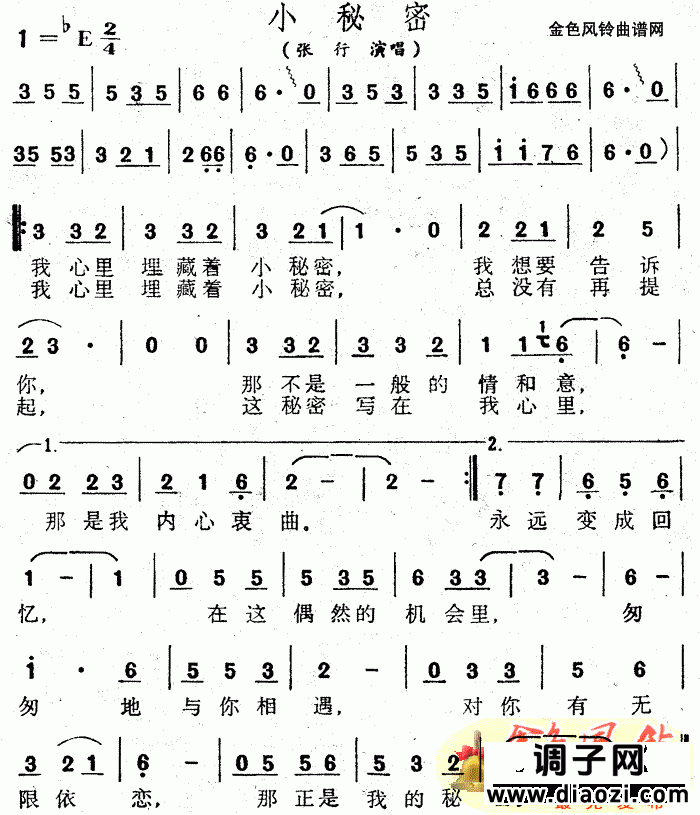 小秘密
1=♭E 2/4 (张 行 演唱) 金色风铃曲谱网
3 5 5 | 5 3 5 | 6 6 | 6 · 0 | 3 5 3 | 3 3 5 | i 6 6 6 | 6 · 0
35 53 | 3 2 1 | 2 6 6 | 6 · 0 | 3 6 5 | 5 3 5 | i i 7 6 | 6 · 0 )
3 3 2 | 3 3 2 | 3 2 1 | 1 · 0 | 2 2 1 | 2 5
我 心里 埋 藏着 小 秘密, 我 想要 告 诉
我 心里 埋 藏着 小 秘密, 总 没有 再 提
2 3 · | 0 0 | 3 3 2 | 3 3 2 | 1 1 6 | 6 -
你, 那 不是 一 般的 情 和意,
起, 这 秘密 写在 我 心里,
1. 2.
0 2 2 3 | 2 1 6 | 2 - | 2 - :| 7 7 | 6 5 6
那 是我 内 心 衷 曲. 永 远 变 成 回
1 - | 1 | 0 5 5 | 5 3 5 | 6 3 3 | 3 - | 6 -
忆, 在 这 偶 然的 机 会里, 匆
i · 6 | 5 5 3 | 2 - | 0 3 3 | 5 6
匆 地 与 你 相 遇, 对 你 有 无
3 2 1 | 6 - | 0 5 5 6 | 5 3 2
限 依 恋, 那 正是 我 的 秘
调子网
www.diaozi.com